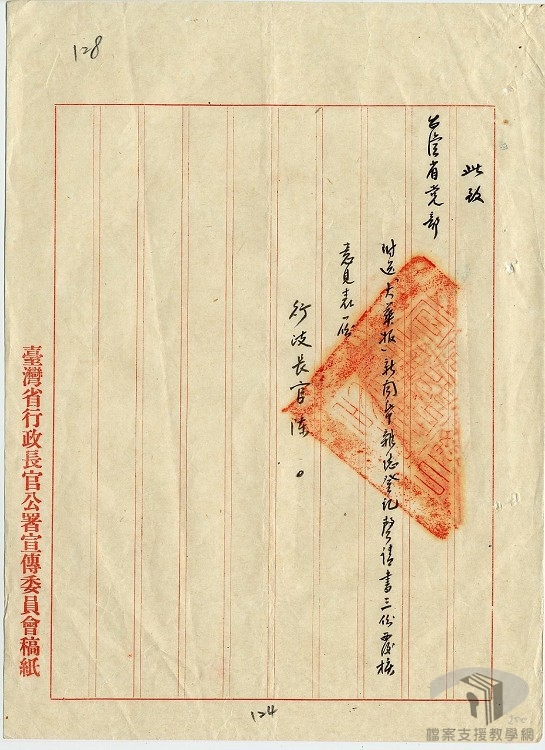 128
此致
台灣省党部
附送「大華报」新聞紙雜誌登記聲請書三份覆核
意見表一份
行政長官陳。
臺灣省行政長官公署宣傳委員會稿紙
124
檔案支援教學網